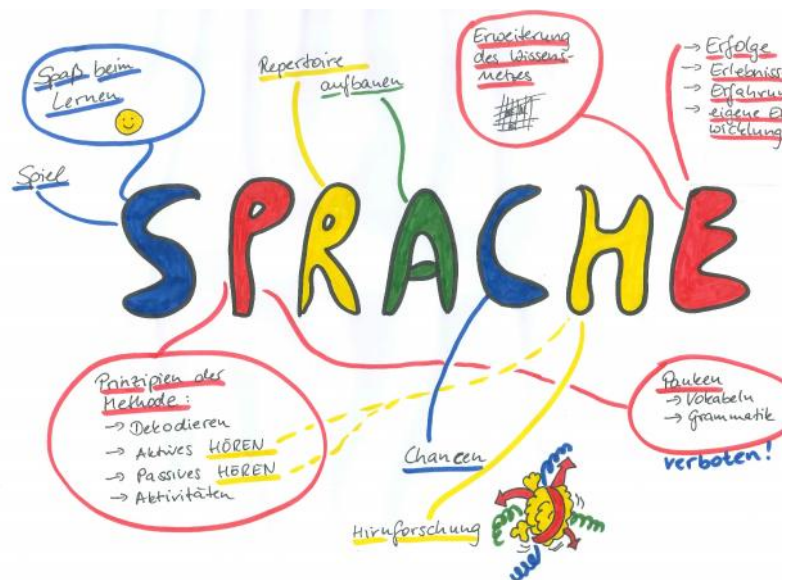 Spaß beim
Lernen
Spiel
Repertoire
aufbauen
Erweiterung
des Wissens-
netzes
→ Erfolge
→ Erlebniss
→ Erfahrun
→ eigene E
wicklung
SPRACHE
Prinzipien der
Methode:
→ Dekodieren
→ Aktives HÖREN
→ Passives HÖREN
→ Aktivitäten
Chancen
Hirnforschung
Pauken
→ Vokabeln
→ Grammatik
verboten!